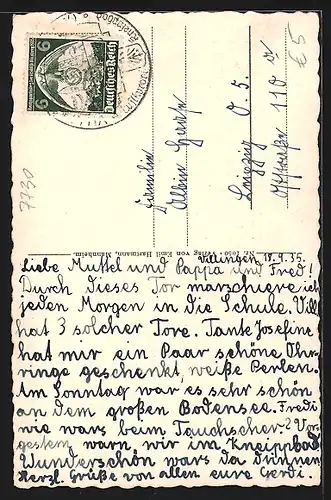 Villingen, 18.9.35.
Liebe Muttel und Pappa und Fred!
Durch dieses Tor marschiere ich
jeden Morgen in die Schule. Vill.
hat 3 solcher Tore. Tante Josefine
hat mir ein Paar schöne Ohr-
ringe geschenkt, weiße Perlen.
Am Sonntag war es sehr schön
an dem großen Bodensee. Fredi
wie wars beim Tauchscher? Vor-
gestern warn wir im Kneippbad
Wunderschön wars da drinnen
Herzl. Grüße von allen eure Gerdi
Verlag von Emil Hartmann, Mannheim
Familie
Leipzig O. 5.
110
Deutsches Reich
6 6
7730
€5